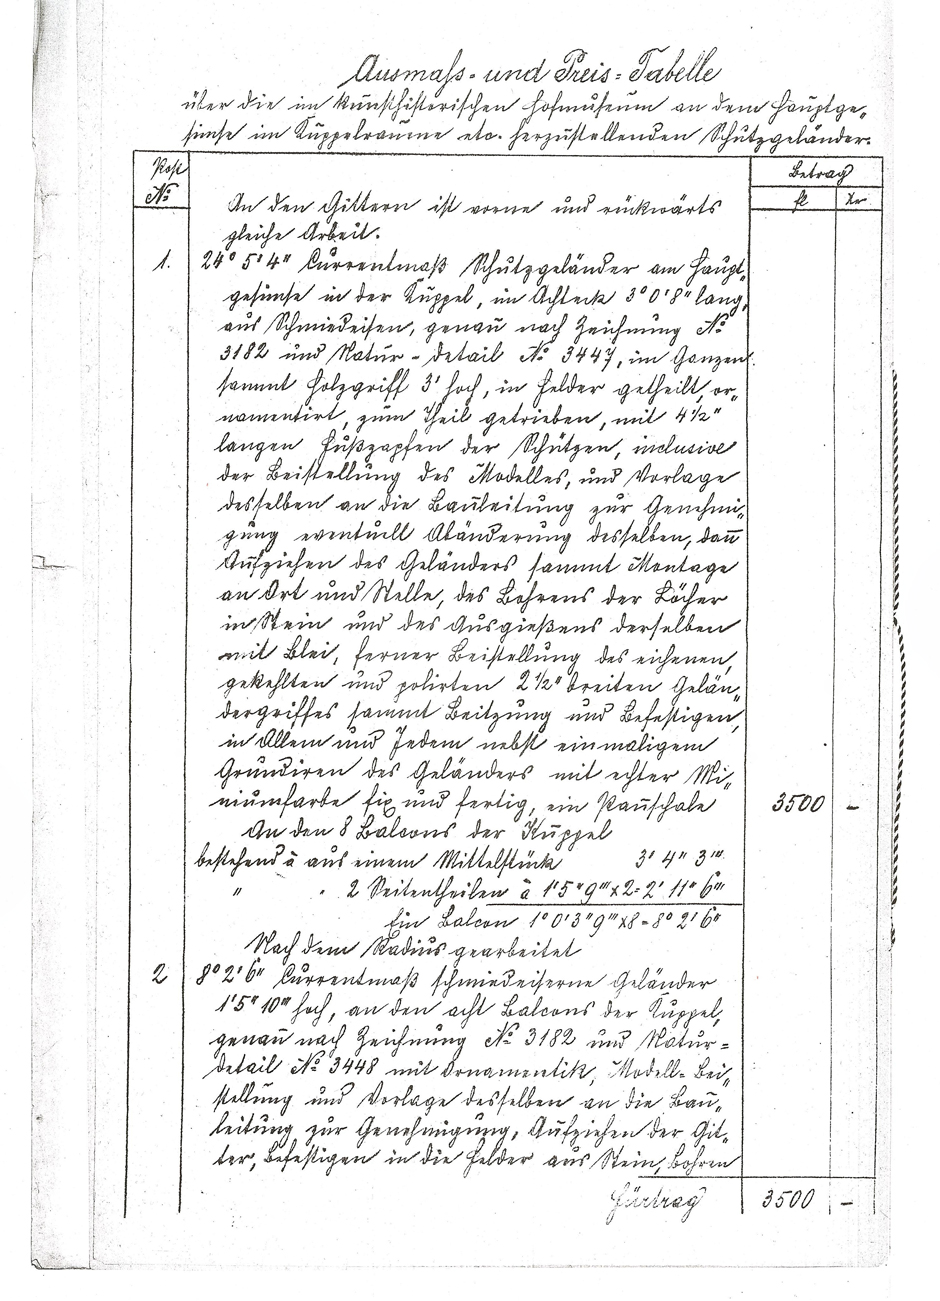 Ausmaß- und Preis-Tabelle
über die im kunsthistorischen Hofmuseum an dem Hauptge„
simse im Kuppelraume etc. herzustellenden Schutzgeländer.
Post No Betrag
fl kr
An den Gittern ist vorne und rückwärts
gleiche Arbeit.
1. 24° 5' 4" Currentmaß Schutzgeländer am Haupt„
gesimse in der Kuppel, im Achteck 3° 0' 8" lang,
aus Schmiedeisen, genau nach Zeichnung No
3182 und Natur-Detail No 3447, im Ganzen
sammt Holzgriff 3' hoch, in Felder getheilt, or„
namentirt, zum Theil getrieben, mit 4 1/2"
langen Fußzapfen der Schützen, inclusive
der Beistellung des Modelles, und Vorlage
desselben an die Bauleitung zur Genehmi„
gung eventuell Abänderung desselben, dann
Aufziehen des Geländers sammt Montage
an Ort und Stelle, des Bohrens der Löcher
in Stein und des Ausgießens derselben
mit Blei, ferner Beistellung des eichenen,
gekehlten und polirten 2 1/2" breiten Gelän„
dergriffes sammt Beitzung und Befestigen,
in Allem und Jedem nebst einmaligem
Grundiren des Geländers mit echter Mi„
niumfarbe fix und fertig, ein Pauschale 3500 -
An den 8 Balcons der Kuppel
bestehend à aus einem Mittelstück 3' 4" 3'''
" . 2 Seitentheilen à 1' 5" 9''' x 2 = 2' 11" 6'''
Ein Balcon 1° 0' 3" 9''' x 8 = 8° 2' 6"
Nach dem Radius gearbeitet
2 8° 2' 6" Currentmaß schmiedeiserne Geländer
1' 5" 10''' hoch, an den acht Balcons der Kuppel,
genau nach Zeichnung No 3182 und Natur=
detail No 3448 mit Ornamentik, Modell-Bei„
stellung und Vorlage desselben an die Bau„
leitung zur Genehmigung, Aufziehen der Git„
ter, Befestigen in die Felder aus Stein, Bohren
Fürtrag 3500 -